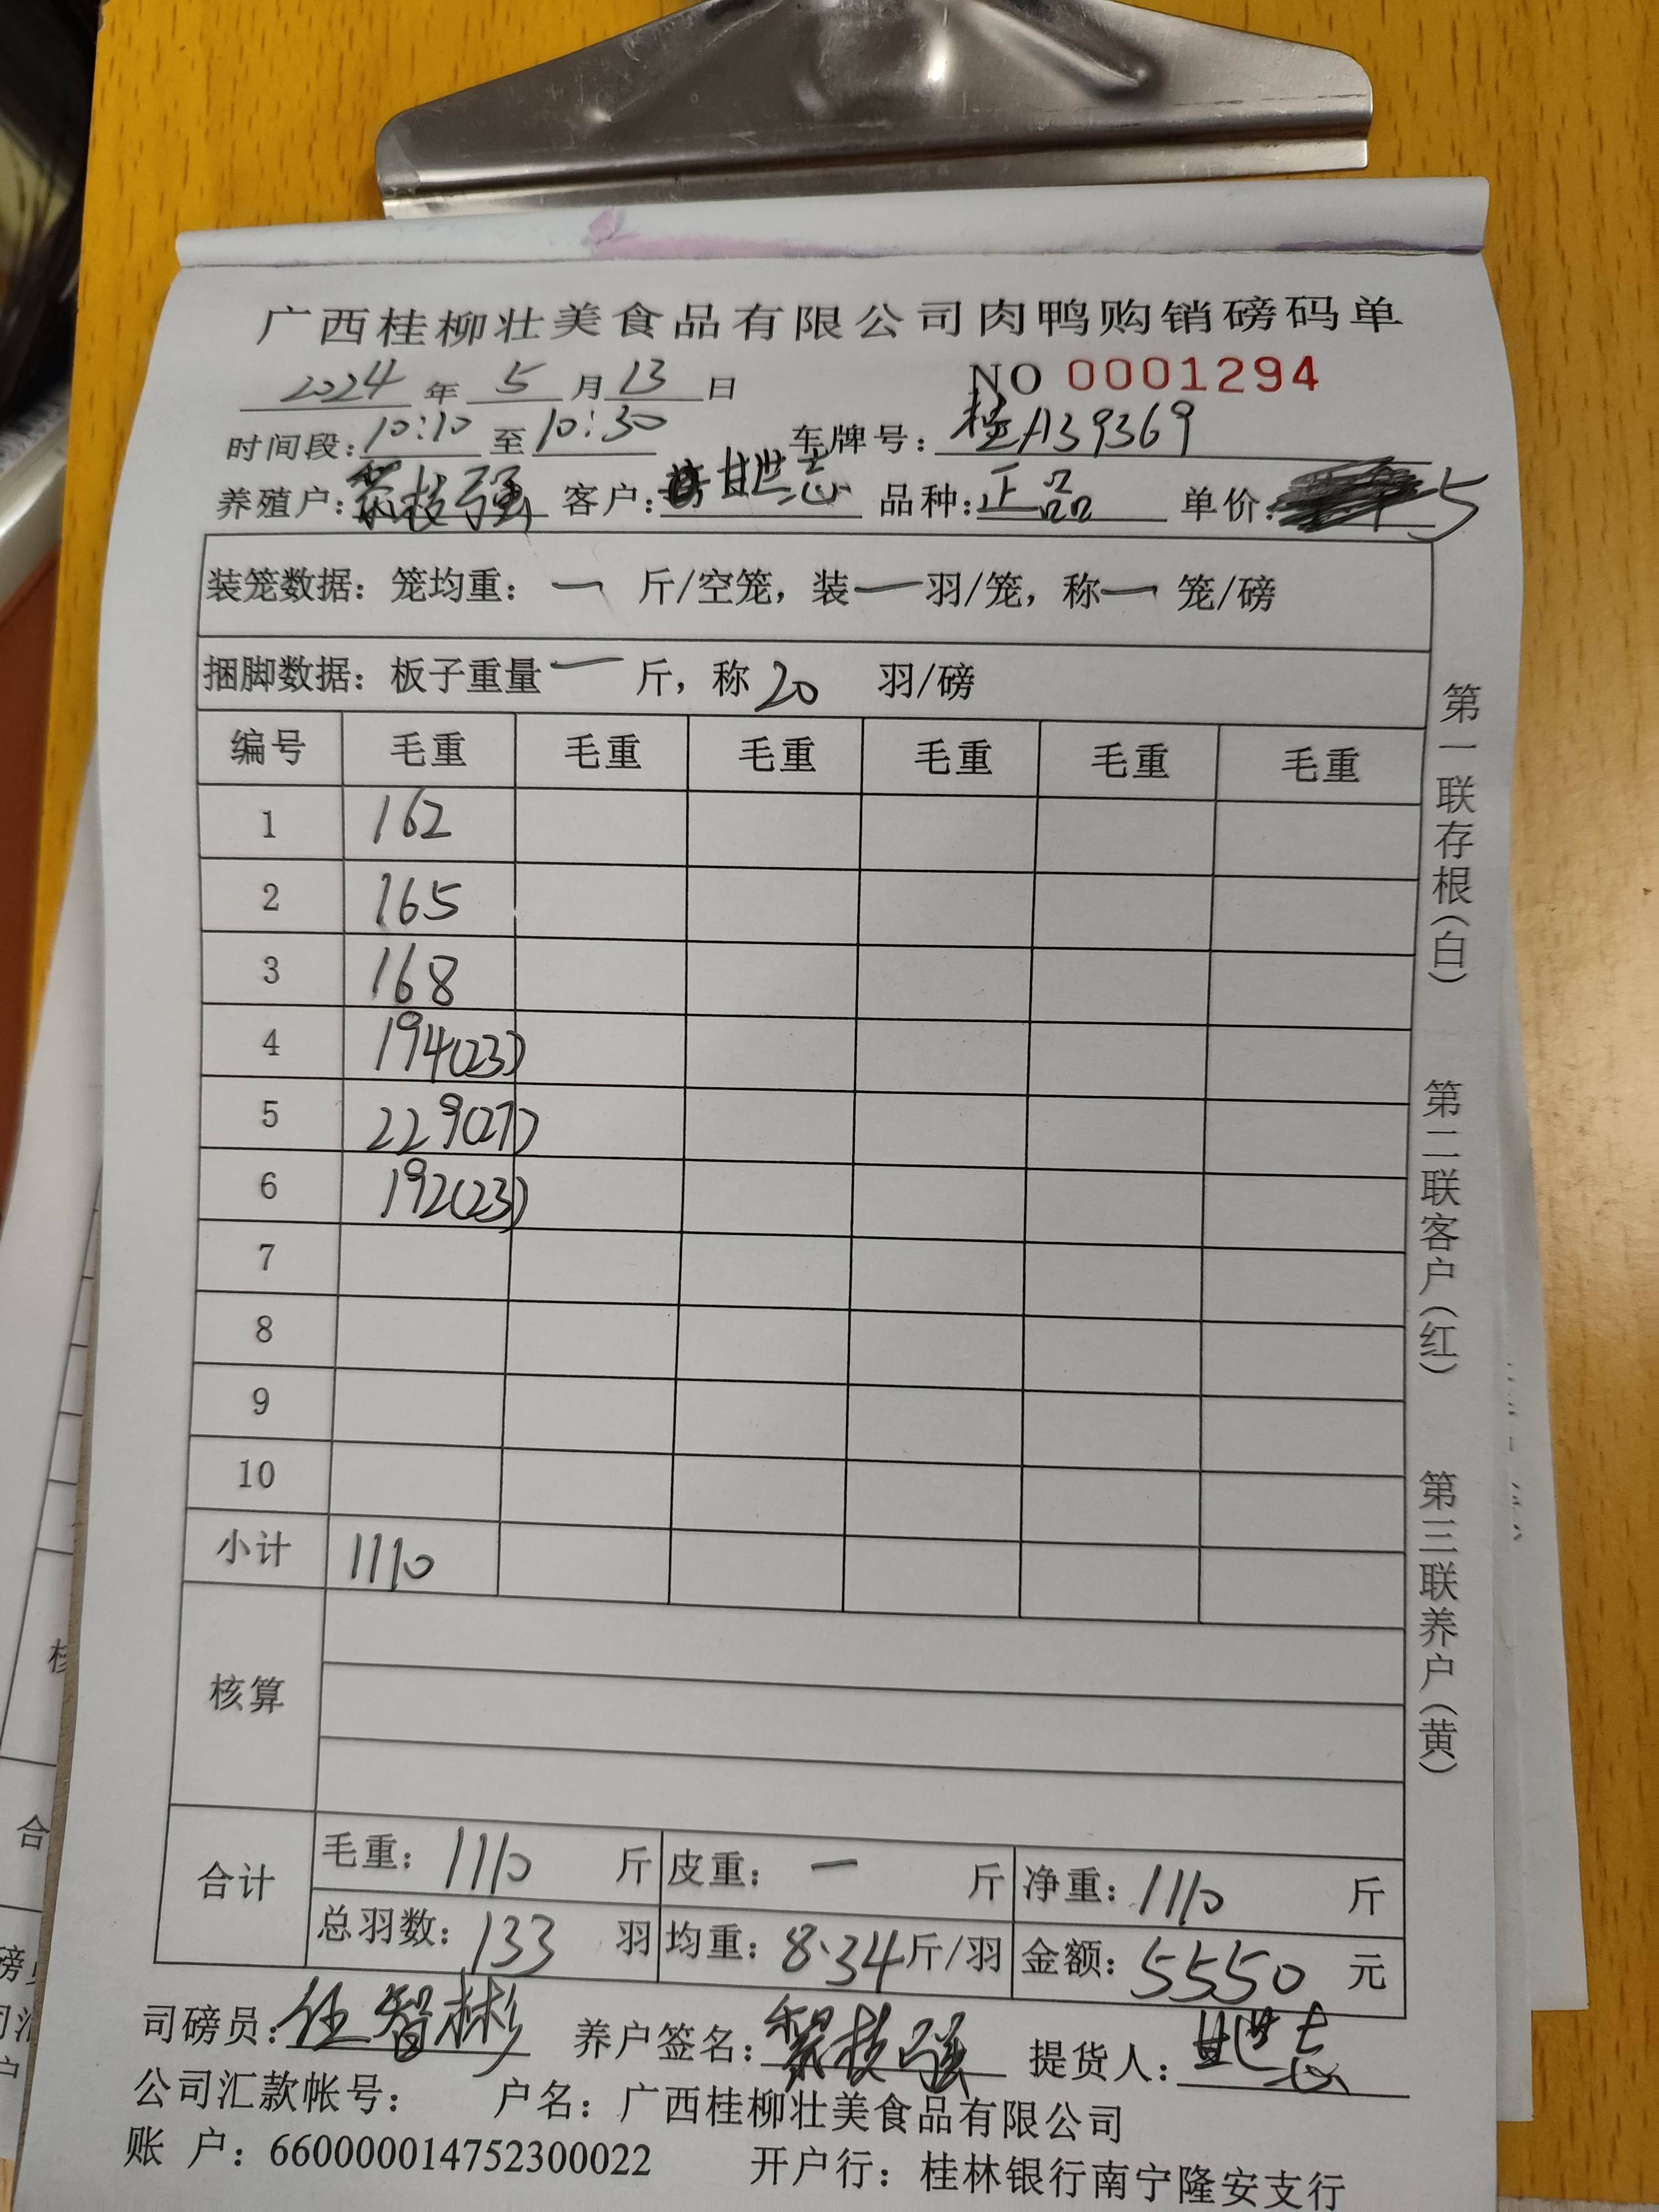 广西桂柳壮美食品有限公司肉鸭购销磅码单
2024年 5月13日 NO 0001294
时间段:10:10至10:30 车牌号:桂A39369
养殖户: 客户: 品种:正品 单价: 5
装笼数据: 笼均重: 一 斤/空笼, 装一羽/笼, 称一 笼/磅
捆脚数据: 板子重量 一 斤, 称 20 羽/磅
编号 毛重 毛重 毛重 毛重 毛重 毛重
1 162
2 165
3 168
4 194(23)
5 229(27)
6 192(23)
7
8
9
10
小计 1110
核算
合计
毛重: 1110 斤 皮重: 一 斤 净重: 1110 斤
总羽数: 133 羽 均重: 8.34斤/羽 金额: 5550 元
司磅员:任智彬 养户签名: 提货人:
公司汇款帐号: 户名: 广西桂柳壮美食品有限公司
账 户: 660000014752300022 开户行: 桂林银行南宁隆安支行
第一联存根(白)
第二联客户(红)
第三联养户(黄)